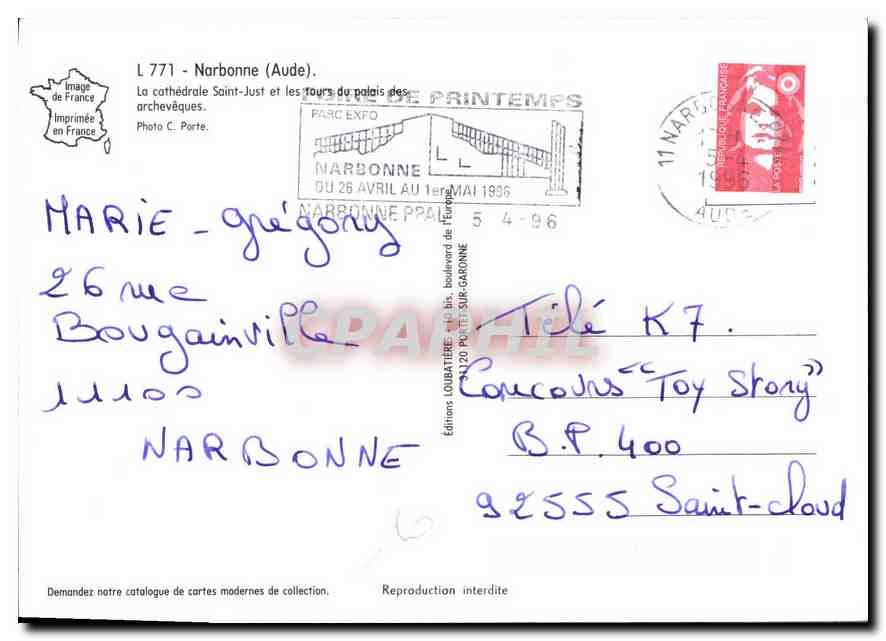 L 771 - Narbonne (Aude).
La cathédrale Saint-Just et les tours du palais des
archevêques.
Photo C. Porte.
Image
de France
Imprimée
en France
FOIRE DE PRINTEMPS
PARC EXPO
NARBONNE
DU 26 AVRIL AU 1er MAI 1996
NARBONNE PPAL
5 4-96
11 NARBO
AUDE
RÉPUBLIQUE FRANÇAISE
LA POSTE
MARIE - Grégory
26 rue
Bougainville
11100
NARBONNE
Éditions LOUBATIÈRES - 10 bis, boulevard de l'Europe
31120 PORTET-SUR-GARONNE
CPAPHIL
Télé K7.
Concours "Toy Story"
B.P. 400
92555 Saint-Cloud
Demandez notre catalogue de cartes modernes de collection.
Reproduction interdite